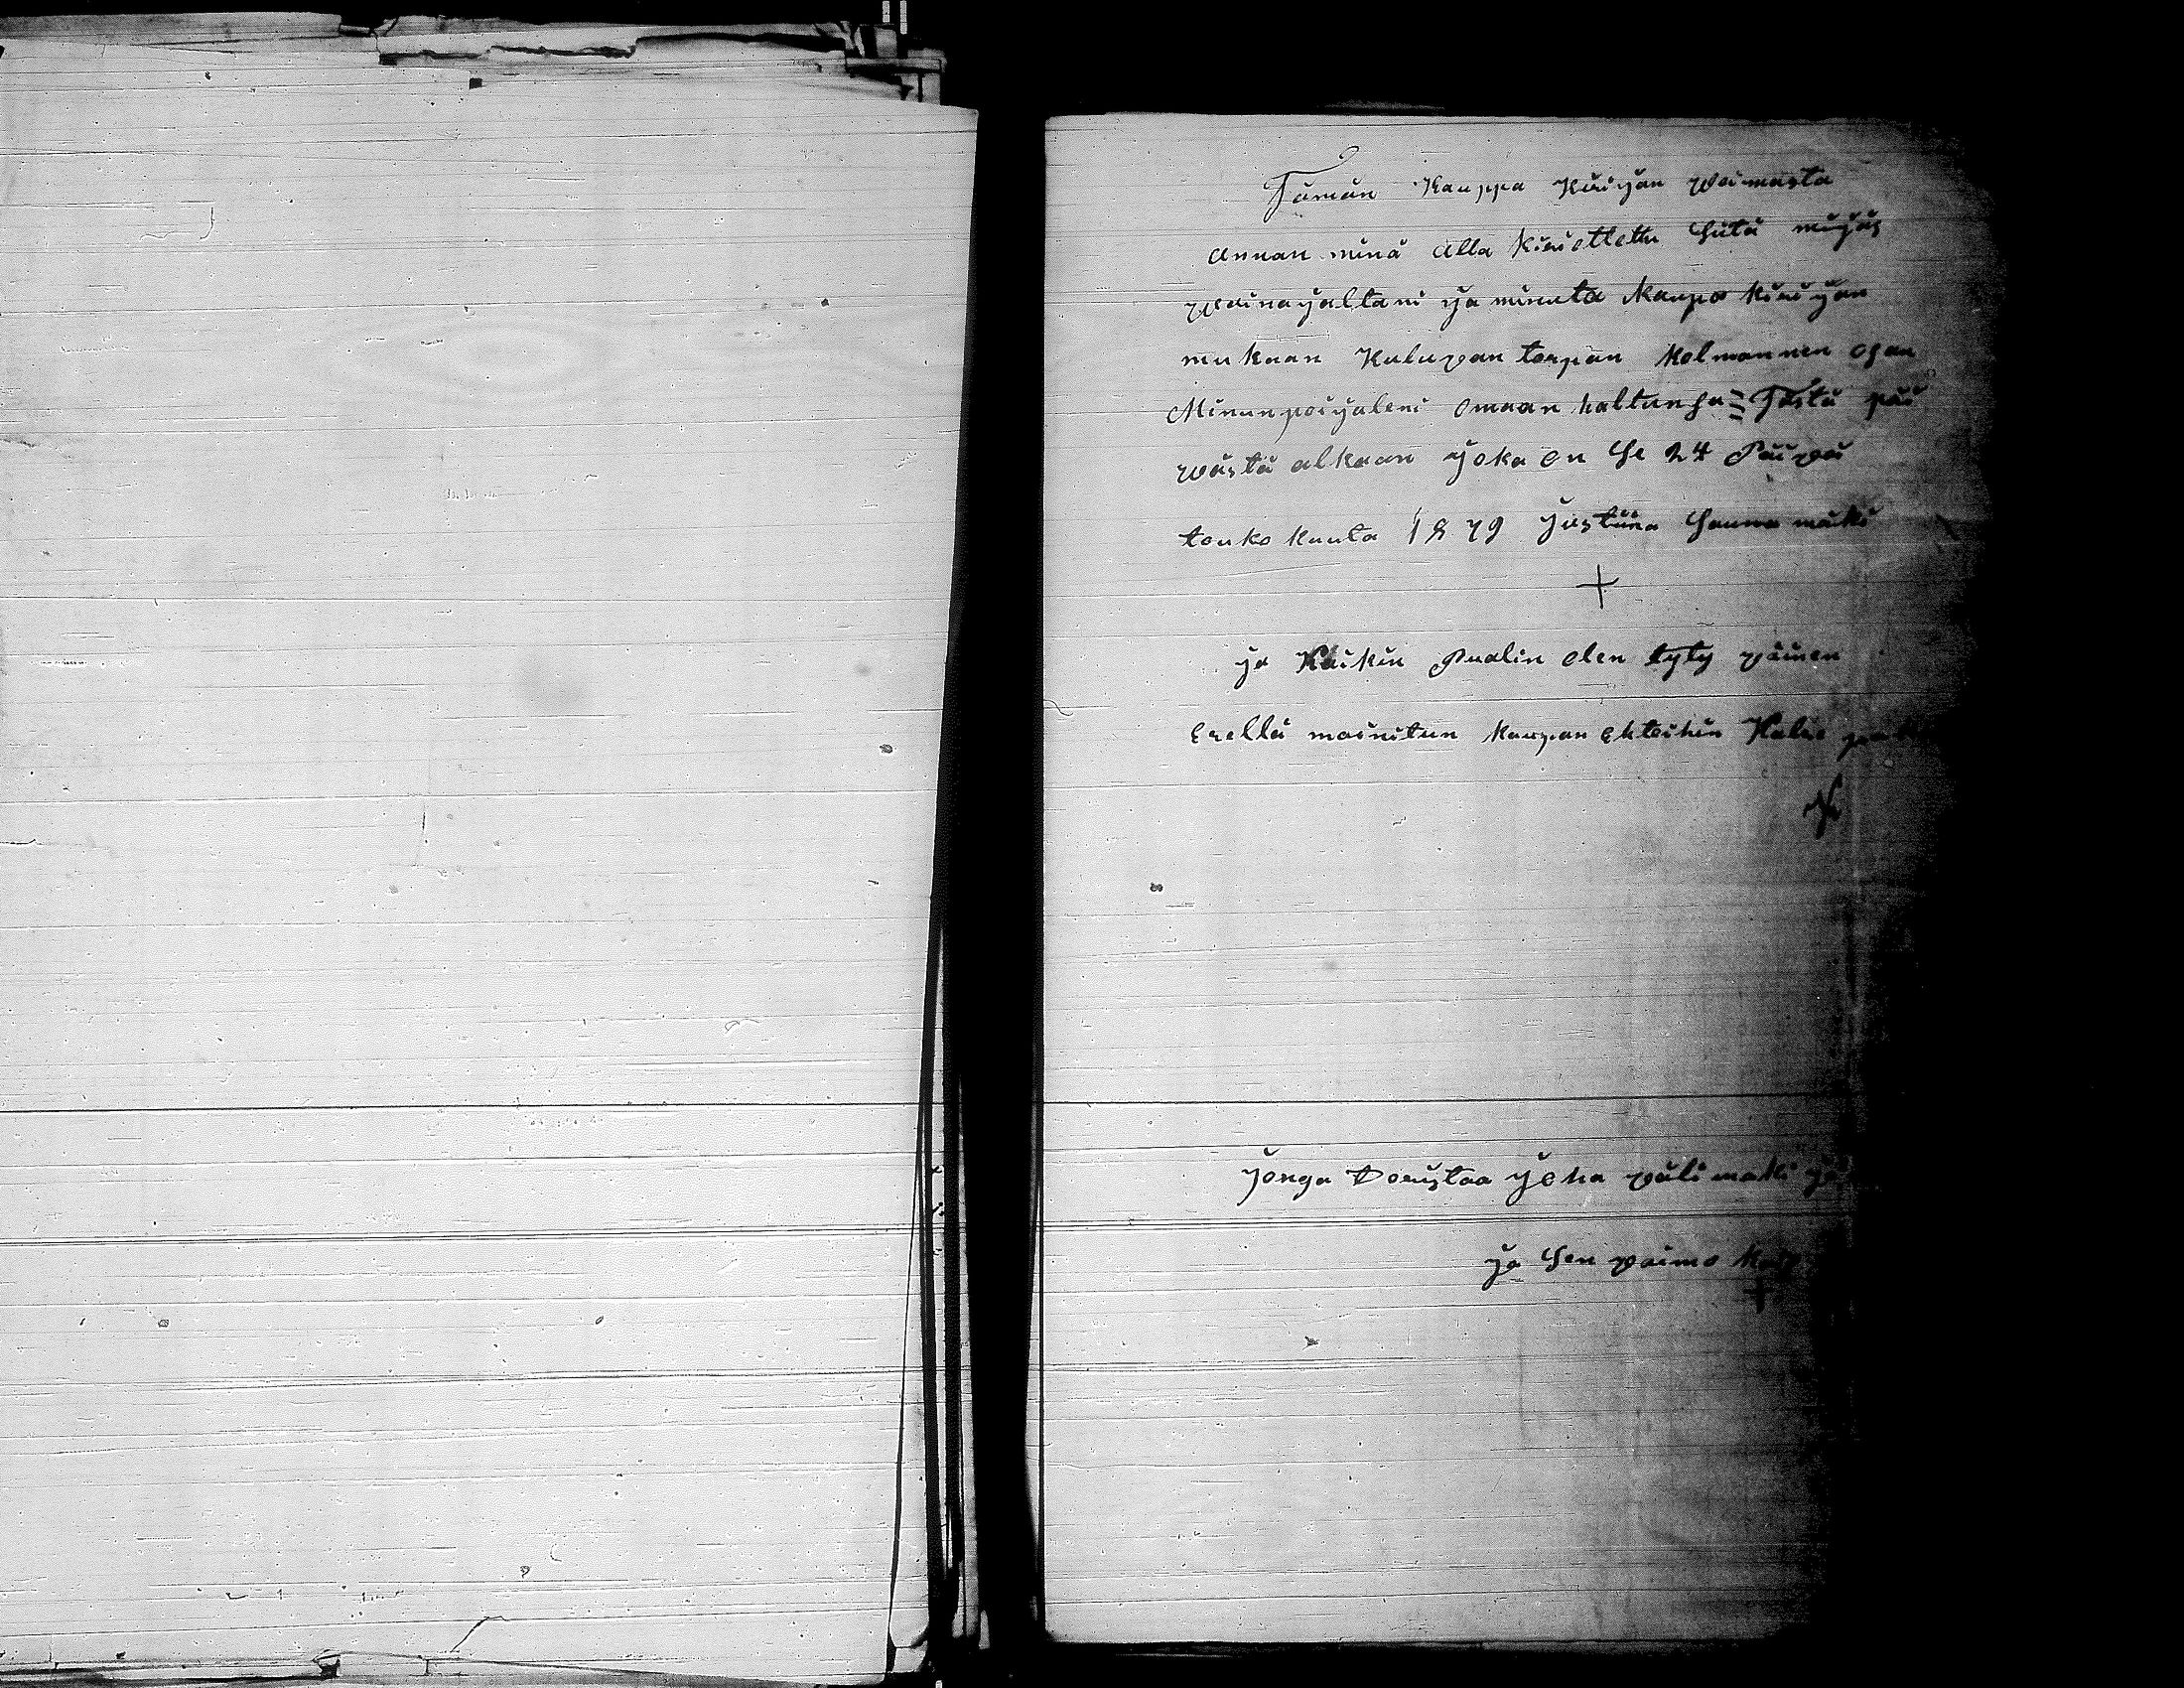 Tämän Kauppa Kirijan Woimasta
annan minä alla Kirietettu Siitä myös
wainajaltani ja minuta Kaupa kirijan
mukaan Kulupan torpan Kolmannen osan
Minun poijaleni Omaan haltunsa Tästä päi
wästä alkaan joka on Se 24 Päiwä
touko kuuta 1879 Justiina Saunamäki
ja Kaikin Pualin olen tyty wäinen
Erellä mainitun Kaupan Ehteihin Kalle
Jonga Toristaa Joha wälimäki
ja Sen waimo